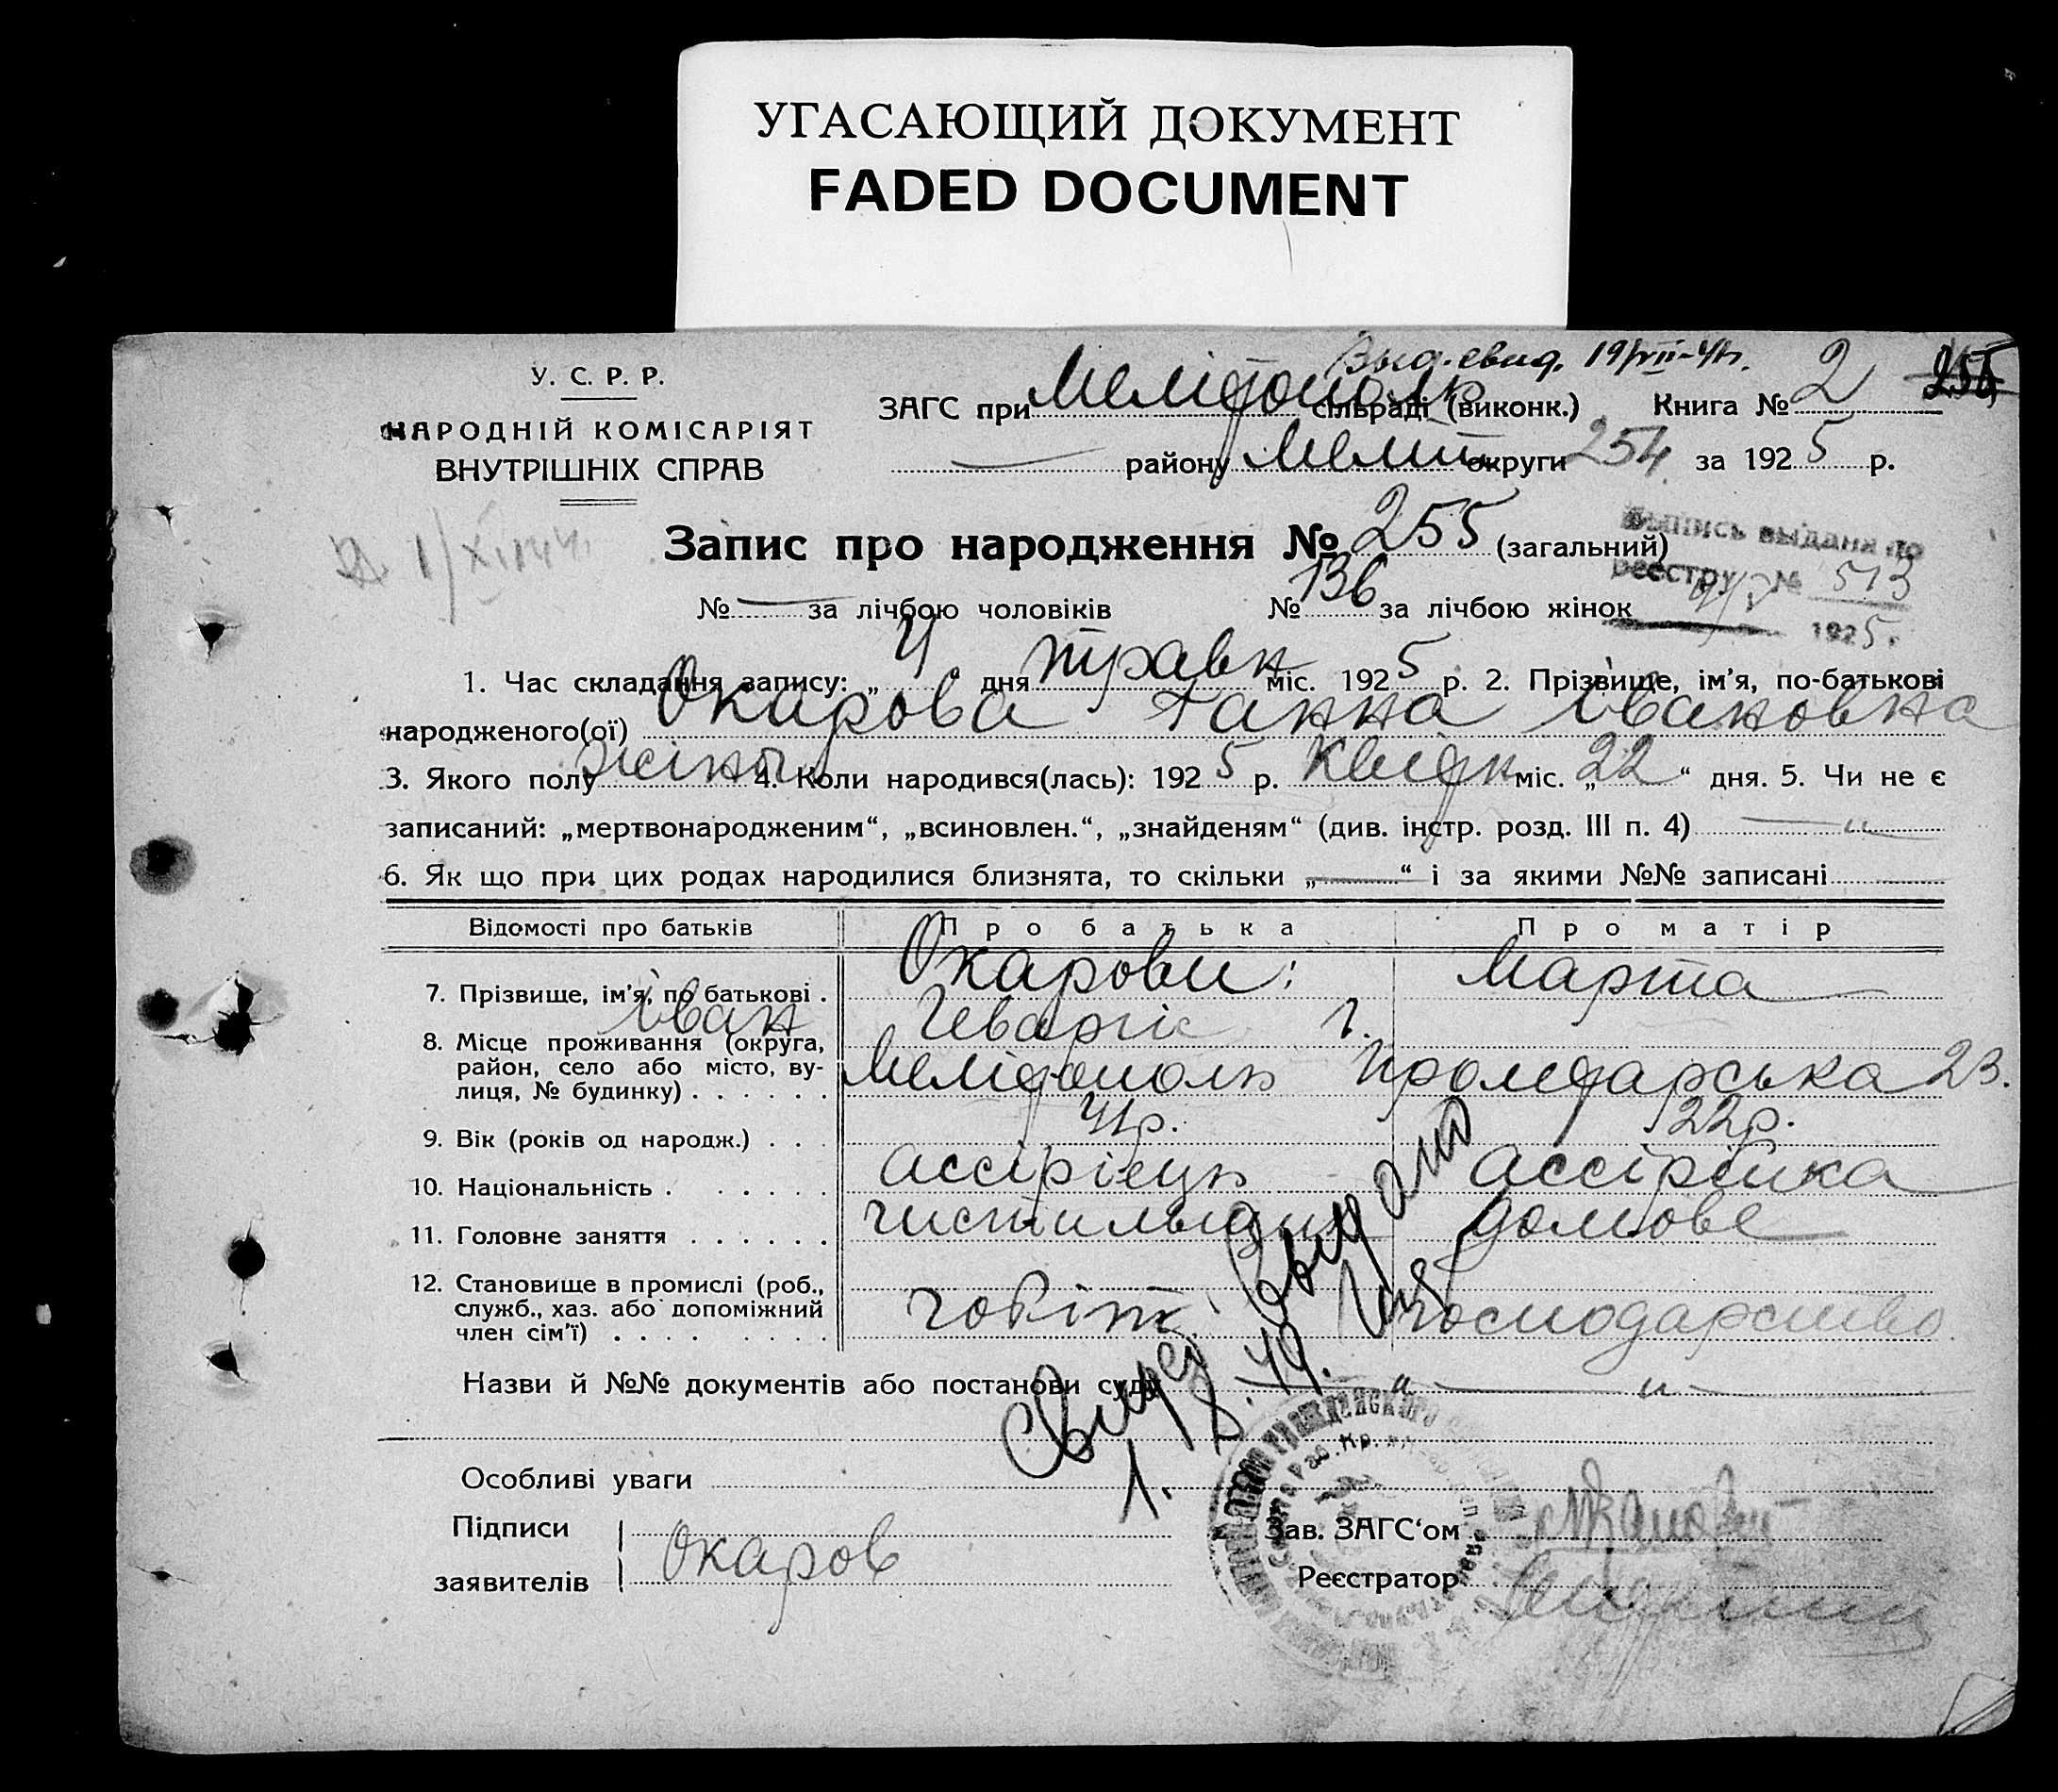 УГАСАЮЩИЙ ДОКУМЕНТ
FADED DOCUMENT
Выд. свид. 19/VII-41г.
У. С. Р. Р.
НАРОДНІЙ КОМІСАРІЯТ
ВНУТРІШНІХ СПРАВ
ЗАГС при Мелітополь сільраді (виконк.) Книга № 2 255
— району Меліт. округи 254 за 1925 р.
Запис про народження № 255 (загальний)
Выпись выдана по
реестру № 513
1925.
№ — за лічбою чоловіків № 136 за лічбою жінок
1. Час складання запису: „4“ дня травн міс. 1925 р. 2. Прізвище, ім'я, по-батькові
народженого(ої) Окарова Ганна Івановна
3. Якого полу жіноч. 4. Коли народився(лась): 1925 р. Квітн міс. „22“ дня. 5. Чи не є
записаний: „мертвонародженим“, „всиновлен.“, „знайденям“ (див. інстр. розд. III п. 4) — „ —
6. Як що при цих родах народилися близнята, то скільки „—“ і за якими №№ записані
Відомості про батьків Про батька Про матір
7. Прізвище, ім'я, по батькові . Окарови: Марта
Іван Геваргіс
8. Місце проживання (округа,
район, село або місто, ву-
лиця, № будинку) . . . . . . Мелітополь Пролетарська 23.
9. Вік (років од народж.) . . . 41р. 22р.
10. Національність . . . . . . Ассірієць Ассірійка
11. Головне заняття . . . . . . чистильщик домове
12. Становище в промислі (роб.,
служб., хаз. або допоміжний
член сім'ї) . . . . . . . . чобіт. господарство.
Свид выдано
1. 8. 49.
Назви й №№ документів або постанови суду — „ — „ —
Особливі уваги
Підписи
заявителів Окаров
Зав. ЗАГС'ом
Реєстратор